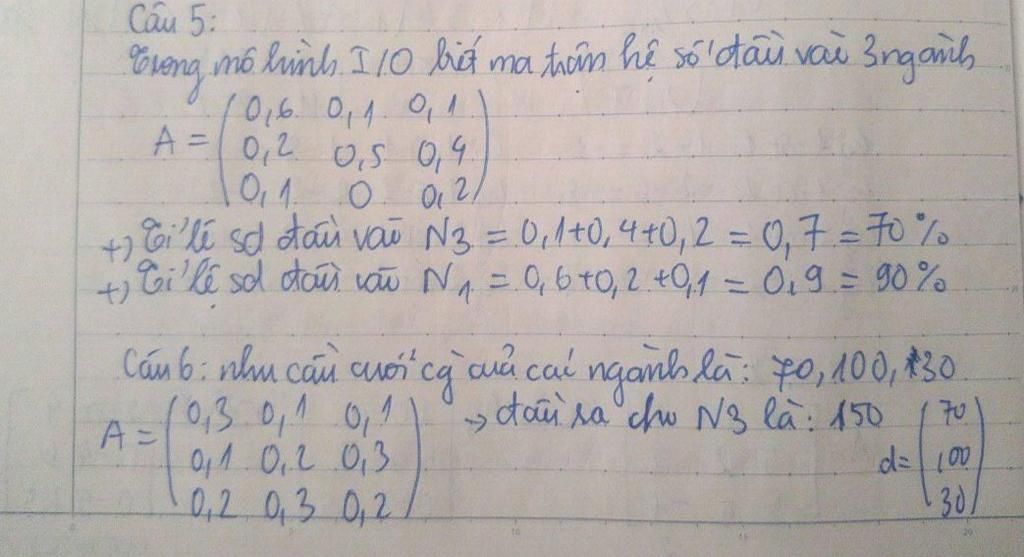 Câu 5:
Trong mô hình I/O biết ma trận hệ số đầu vào 3 ngành
A = (0,6 0,1 0,1
0,2 0,5 0,4
0,1 0 0,2)
+) Tỉ lệ sd đầu vào N3 = 0,1+0,4+0,2 = 0,7 = 70%
+) Tỉ lệ sd đầu vào N1 = 0,6+0,2+0,1 = 0,9 = 90%
Câu 6: nhu cầu cuối cg của các ngành là: 70, 100, 30
A = (0,3 0,1 0,1
0,1 0,2 0,3
0,2 0,3 0,2)
→ đầu ra cho N3 là: 150
d = (70
100
30)